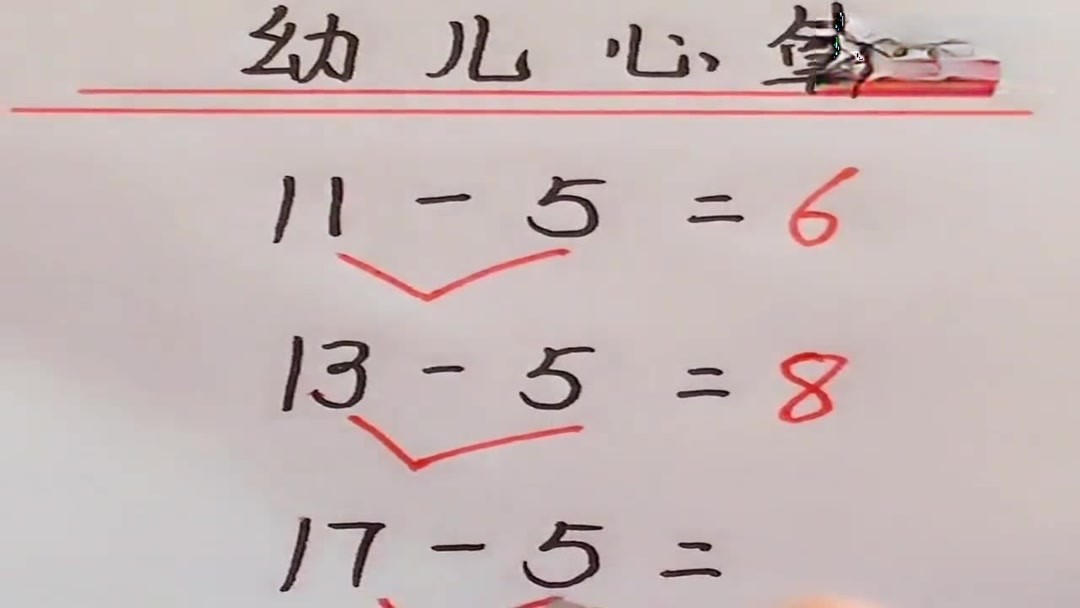 幼儿心算
11 - 5 = 6
13 - 5 = 8
17 - 5 =